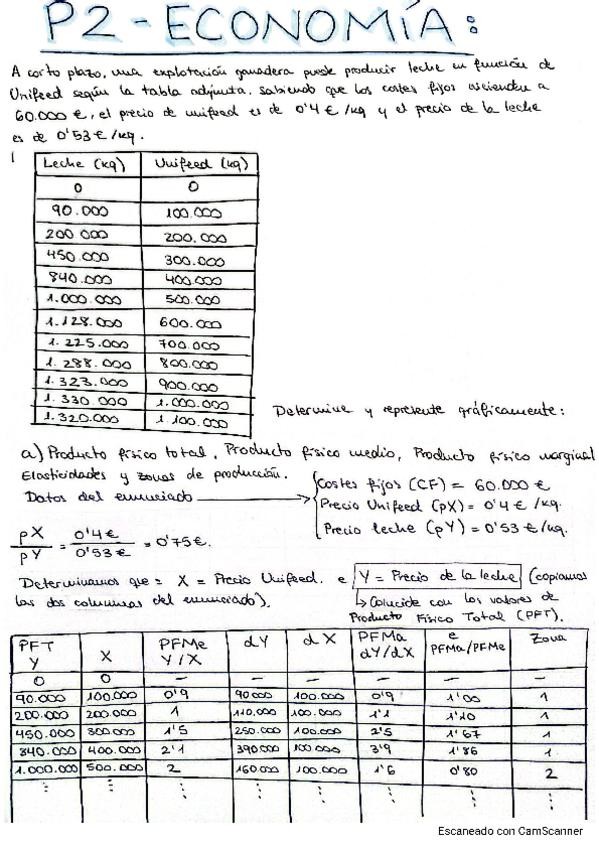 P2 - ECONOMÍA:
A corto plazo, una explotación ganadera puede producir leche en función de
Unifeed según la tabla adjunta, sabiendo que los costes fijos ascienden a
60.000 €, el precio de unifeed es de 0'4 €/kg y el precio de la leche
es de 0'53 €/kg.
Leche (kg) Unifeed (kg)
0 0
90.000 100.000
200.000 200.000
450.000 300.000
840.000 400.000
1.000.000 500.000
1.128.000 600.000
1.225.000 700.000
1.288.000 800.000
1.323.000 900.000
1.330.000 1.000.000
1.320.000 1.100.000
Determine y represente gráficamente:
a) Producto físico total, Producto físico medio, Producto físico marginal
Elasticidades y zonas de producción.
Datos del enunciado → Costes fijos (CF) = 60.000 €
Precio Unifeed (pX) = 0'4 €/kg.
Precio leche (pY) = 0'53 €/kg.
pX/pY = 0'4€/0'53€ = 0'75€.
Determinamos que = X = Precio Unifeed. e Y = Precio de la leche (copiamos
las dos columnas del enunciado). ↳ Coincide con los valores de
Producto Físico Total (PFT).
PFT Y X PFMe Y/X dY dX PFMa dY/dX e PFMa/PFMe Zona
0 0 – – – – – –
90.000 100.000 0'9 90000 100.000 0'9 1'00 1
200.000 200.000 1 110.000 100.000 1'1 1'10 1
450.000 300.000 1'5 250.000 100.000 2'5 1'67 1
840.000 400.000 2'1 390000 100000 3'9 1'86 1
1.000.000 500.000 2 160.000 100.000 1'6 0'80 2
⋮ ⋮ ⋮ ⋮ ⋮ ⋮ ⋮ ⋮
Escaneado con CamScanner